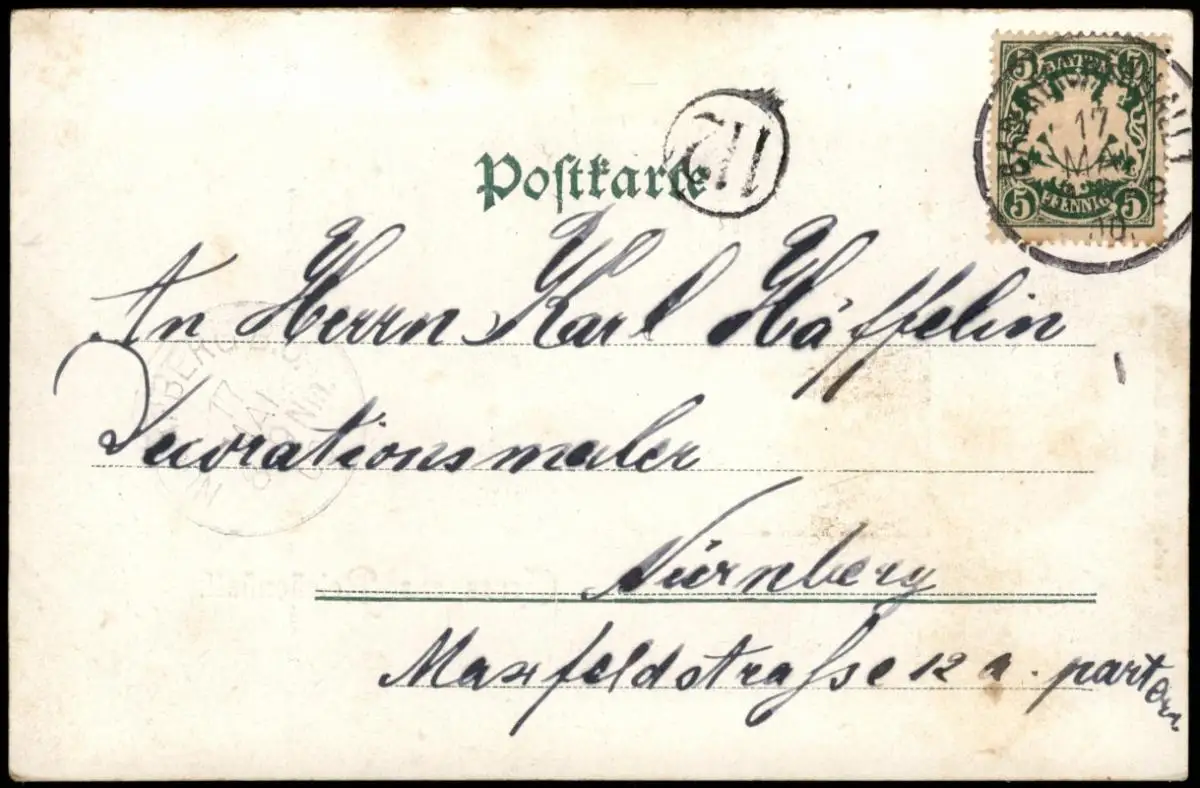 Postkarte
112
5 BAYERN 5
5 PFENNIG 5
17
MAI
An Herrn Karl Häffelin
Decorationsmaler
Nürnberg
Maxfeldstrasse 12 a. partern
NÜRNBERG
17
MAI